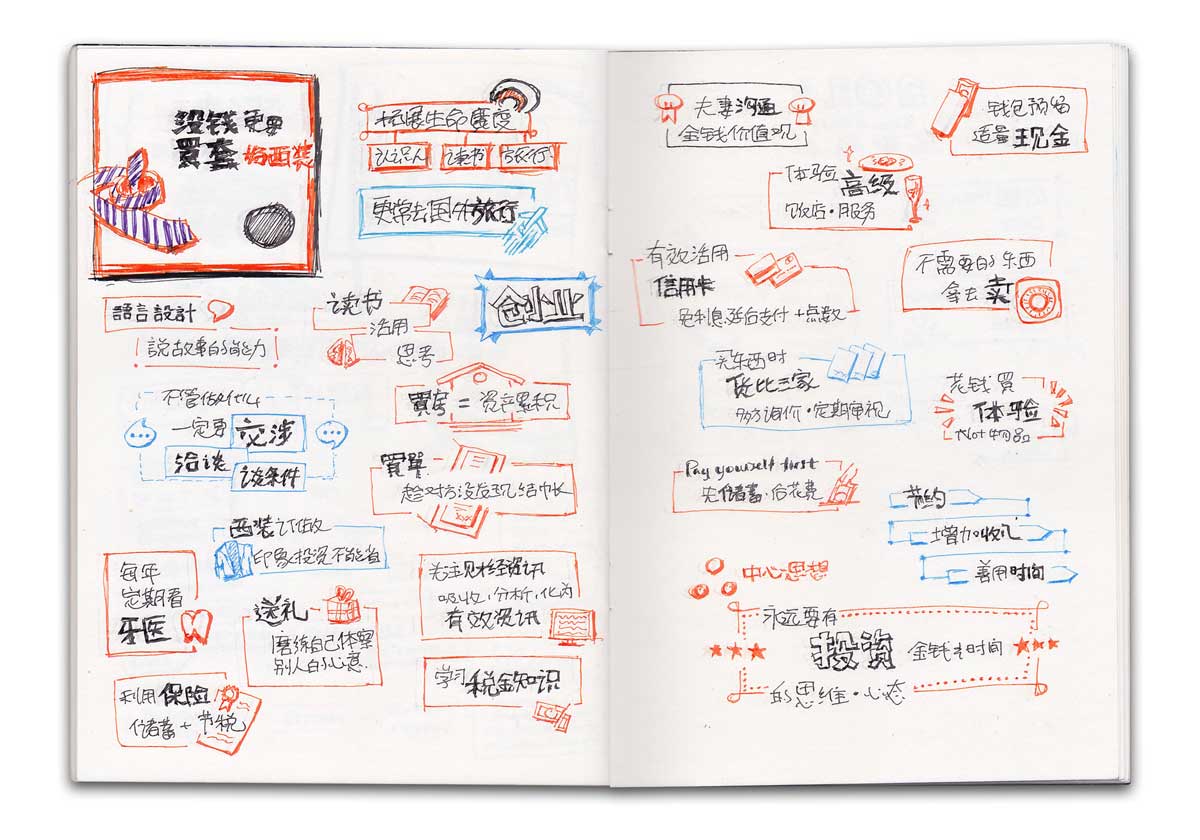 没钱更要
買套好西装
拓展生命廣度
认识人
读书
旅行
更常去国外旅行
創业
語言設計
說故事的能力
读书
活用
思考
不管做什么
一定要交涉
洽谈
谈条件
買房 = 资产累积
買單
趁对方没发现结帐
西装订做
印象投资不能省
每年
定期看
牙医
送礼
磨練自己体察
别人的心意
关注财经资讯
吸收,分析,化为
有效资讯
利用保险
储蓄 + 节税
学习税金知识
夫妻沟通
金钱价值观
钱包预留
适量现金
体验高级
饭店·服务
有效活用
信用卡
免利息延后支付 + 点数
不需要的东西
拿去卖
买东西时
货比三家
多方询价·定期审视
花钱買
体验
Not 物品
Pay yourself first
先储蓄,后花费
节约
增加收入
善用时间
中心思想
永远要有
投资 金钱与时间
的思维·心态